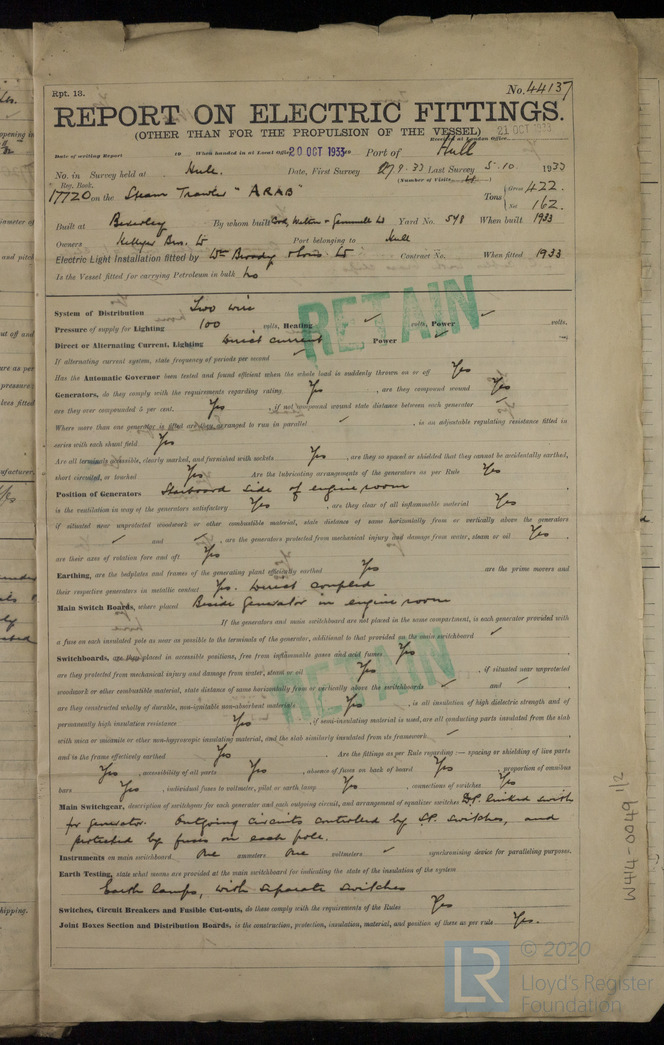 Rpt. 13.
No. 44137
REPORT ON ELECTRIC FITTINGS.
(OTHER THAN FOR THE PROPULSION OF THE VESSEL)
21 OCT 1933
Received at London Office
Date of writing Report 19 When handed in at Local Office 20 OCT 1933 19 Port of Hull
No. in Survey held at Hull. Date, First Survey 27 9. 33 Last Survey 5. 10 1933
Reg. Book. (Number of Visits 4)
17720 on the Steam Trawler "ARAB" Tons Gross 422. Net 162.
Built at Beverley By whom built Cook, Welton & Gemmell Ld Yard No. 548 When built 1933
Owners Hellyer Bros. Ld Port belonging to Hull
Electric Light Installation fitted by Wm Broady & Sons. Ld Contract No. When fitted 1933
Is the Vessel fitted for carrying Petroleum in bulk No
RETAIN
System of Distribution Two wire
Pressure of supply for Lighting 100 volts, Heating volts, Power volts.
Direct or Alternating Current, Lighting Direct current Power
If alternating current system, state frequency of periods per second
Has the Automatic Governor been tested and found efficient when the whole load is suddenly thrown on or off Yes
Generators, do they comply with the requirements regarding rating Yes , are they compound wound Yes
are they over compounded 5 per cent. Yes , if not compound wound state distance between each generator
Where more than one generator is fitted are they arranged to run in parallel , is an adjustable regulating resistance fitted in
series with each shunt field Yes
Are all terminals accessible, clearly marked, and furnished with sockets Yes , are they so spaced or shielded that they cannot be accidentally earthed,
short circuited, or touched Yes Are the lubricating arrangements of the generators as per Rule Yes
Position of Generators Starboard side of engine room
is the ventilation in way of the generators satisfactory Yes , are they clear of all inflammable material Yes
if situated near unprotected woodwork or other combustible material, state distance of same horizontally from or vertically above the generators
and , are the generators protected from mechanical injury and damage from water, steam or oil Yes.
are their axes of rotation fore and aft Yes
Earthing, are the bedplates and frames of the generating plant efficiently earthed Yes are the prime movers and
their respective generators in metallic contact Yes. Direct coupled
Main Switch Boards, where placed Beside Generator in engine room
If the generators and main switchboard are not placed in the same compartment, is each generator provided with
a fuse on each insulated pole as near as possible to the terminals of the generator, additional to that provided on the main switchboard
Switchboards, are they placed in accessible positions, free from inflammable gases and acid fumes Yes
are they protected from mechanical injury and damage from water, steam or oil Yes , if situated near unprotected
woodwork or other combustible material, state distance of same horizontally from or vertically above the switchboards and
RETAIN
are they constructed wholly of durable, non-ignitable non-absorbent materials Yes , is all insulation of high dielectric strength and of
permanently high insulation resistance Yes , if semi-insulating material is used, are all conducting parts insulated from the slab
with mica or micanite or other non-hygroscopic insulating material, and the slab similarly insulated from its framework
and is the frame effectively earthed Yes Are the fittings as per Rule regarding :— spacing or shielding of live parts
Yes , accessibility of all parts Yes , absence of fuses on back of board Yes , proportion of omnibus
bars Yes , individual fuses to voltmeter, pilot or earth lamp Yes , connections of switches Yes
Main Switchgear, description of switchgear for each generator and each outgoing circuit, and arrangement of equalizer switches D.P. linked switch
for generator. Outgoing circuits controlled by S.P. switches, and
protected by fuses on each pole.
Instruments on main switchboard One ammeters One voltmeters synchronising device for paralleling purposes.
Earth Testing, state what means are provided at the main switchboard for indicating the state of the insulation of the system
Earth lamps, with separate switches
Switches, Circuit Breakers and Fusible Cut-outs, do these comply with the requirements of the Rules Yes
Joint Boxes Section and Distribution Boards, is the construction, protection, insulation, material, and position of these as per rule Yes.
W414-0049 1/2
LR
© 2020
Lloyd's Register
Foundation